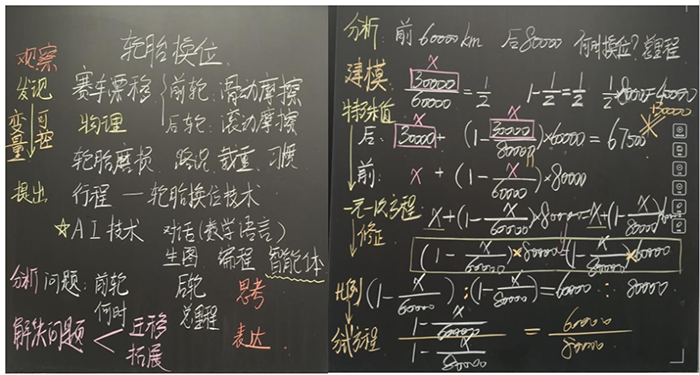 轮胎换位
观察
发现 赛车漂移 { 前轮:滑动摩擦
变量 可控 物理 后轮:滚动摩擦
轮胎磨损 路况、载重、习惯
提出 行程 — 轮胎换位技术
☆AI技术 对话(数学语言)
生图 编程 智能体
分析问题:前轮 后轮 思考
何时 总里程
解决问题 < 迁移 表达
拓展
分析:前60000km 后80000 何时换位?总里程
建模: x 30000/60000 = 1/2 1-1/2=1/2 1/2×80000=40000
+30000
特殊值
后: x 30000 + (1- x 30000/80000)×60000 = 67500
前: x + (1- x/60000)×80000
一元一次方程 x+(1-x/60000)×80000=x+(1-x/80000)×60000
修正 (1-x/60000)×80000=(1-x/80000)×60000
比例 (1-x/60000):(1-x/80000)=60000:80000
分式方程 (1-x/60000)/(1-x/80000) = 60000/80000